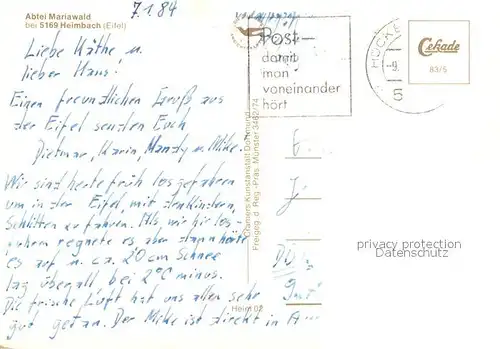 7.1.84
Abtei Mariawald
bei 5169 Heimbach (Eifel)
Liebe Käthe, u.
lieber Hans!
Einen freundlichen Gruß aus
der Eifel senden Euch
Dietmar, Karin, Mandy u. Mike.
Wir sind heute früh losgefahren
um in der Eifel, mit den Kindern,
Schlitten zu fahren. Als wir hir los-
fuhren regnete es aber dann hörte
es auf u. ca. 20 cm Schnee
lag überall, bei 2°C minus.
Die frische Luft hat uns allen sehr
gut getan. Der Mike ist direkt in
Post-
damit
man
voneinander
hört
HÜCKE
-9.
5
Cekade
83/5
Cramers Kunstanstalt Dortmund
Freigeg. d. Reg.-Präs. Münster 3462/74
Heim 02
privacy protection
Datenschutz